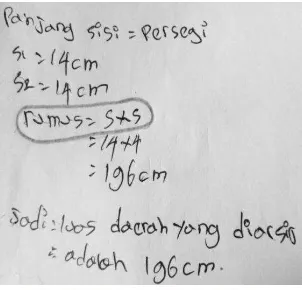 Panjang sisi = Persegi
S1 = 14cm
S2 = 14cm
rumus = S×S
= 14×4
= 196cm
Jadi = luas daerah yang diarsir
= adalah 196cm.